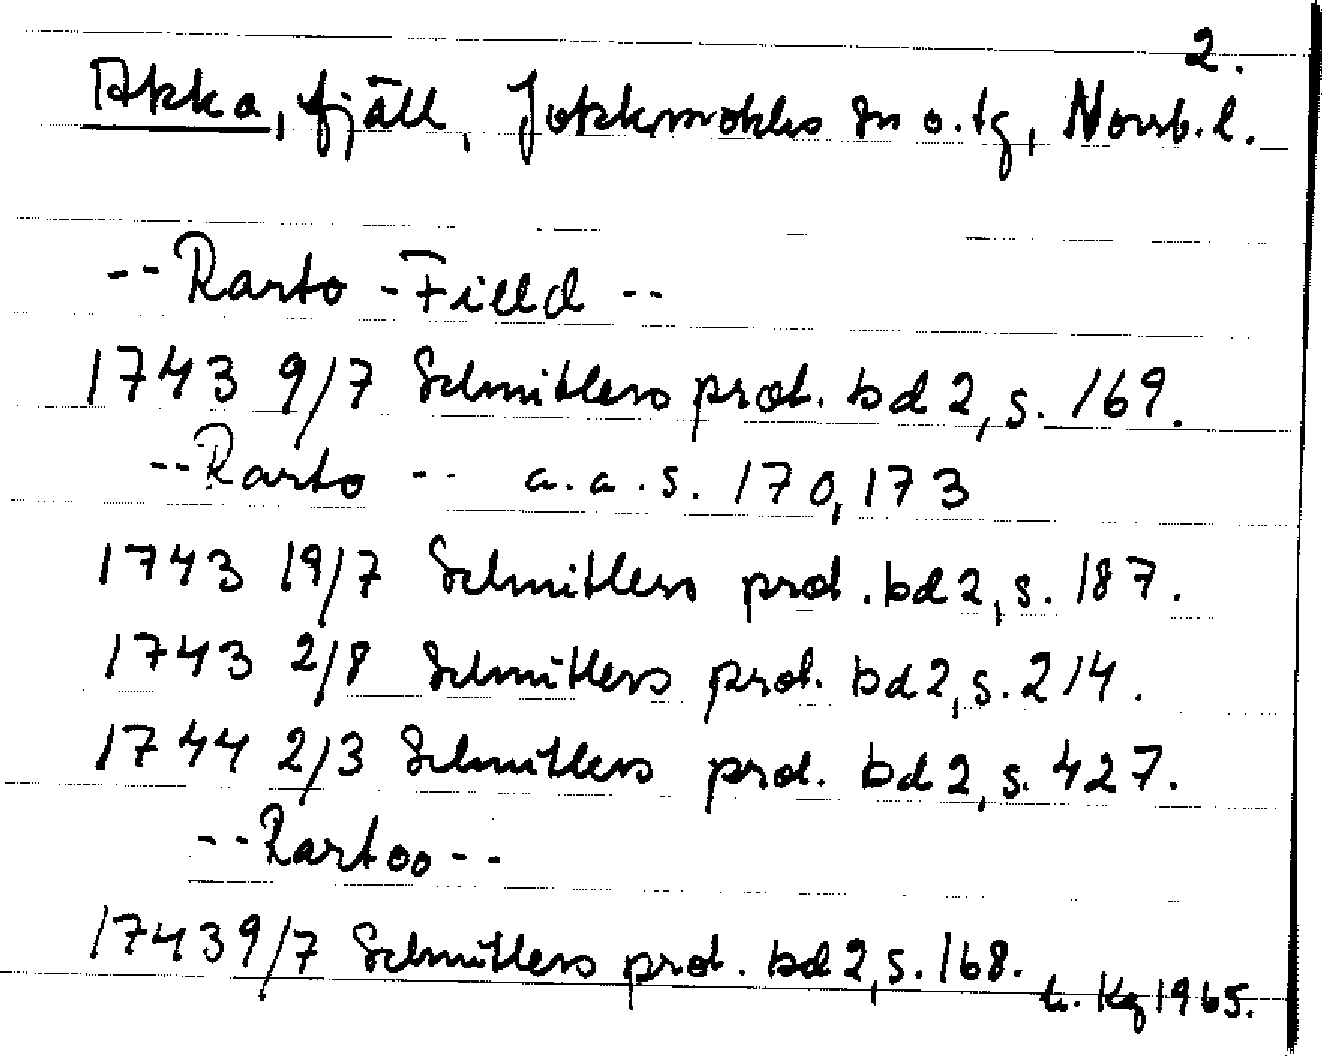 2.
Akka, fjäll, Jokkmokks sn o. tg, Norrb. l.
-- Rarto - Fielld --
1743 9/7 Schnitlers prot. bd 2, s. 169.
-- Rarto -- a. a. s. 170, 173
1743 19/7 Schnitlers prot. bd 2, s. 187.
1743 2/8 Schnitlers prot. bd 2, s. 214.
1744 2/3 Schnitlers prot. bd 2, s. 427.
-- Rartoo --
1743 9/7 Schnitlers prot. bd 2, s. 168.
Kg 1965.